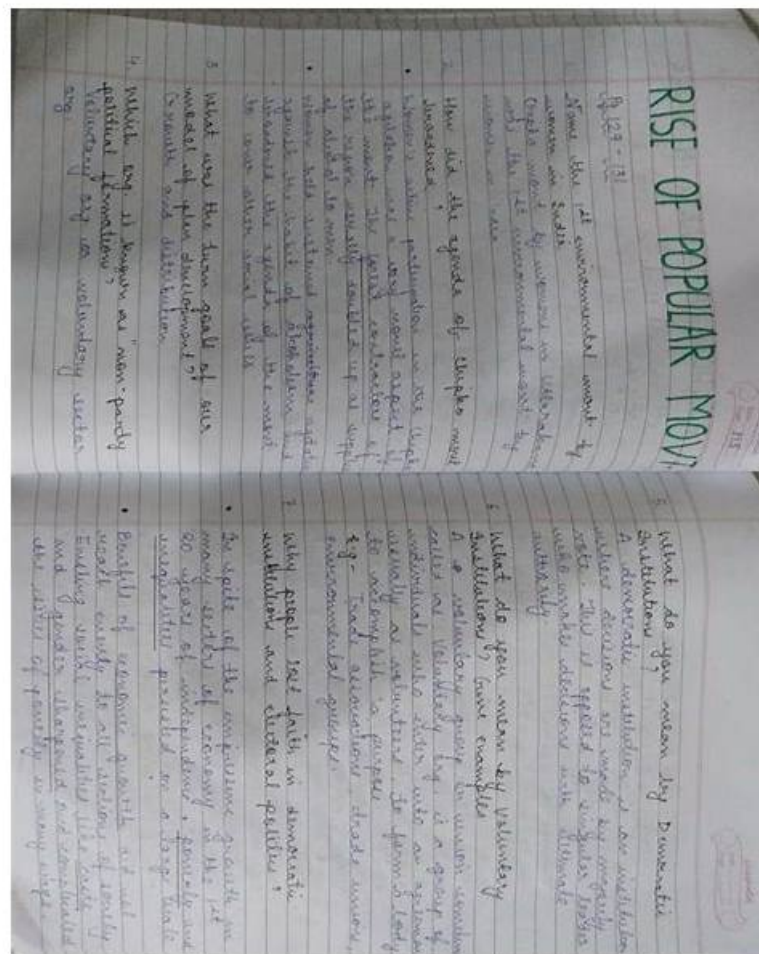 RISE OF POPULAR MOV
Pg 129-131
Name the 1st environmental movt by
women in India
Chipko movt by womens in Uttarakhan
was the 1st environmental movt by
women in India
2 How did the agenda of Chipko movt
broadened?
• Women's active participation in the Chipko
agitation was a very novel aspect of
the movt. The forest contractors of
the region usually doubled up as suppli
of alcohol to men
• Women held sustained agitations
against the habit of alcoholism and
broadened the agenda of the movt
to cover other social issues
3 What was the twin goals of our
model of plan development?
Growth and distribution
4. Which org. is known as "non-party
political formations?
Voluntary org or voluntary sector
org
5 What do you mean by Democratic
Institutions?
A democratic institution is an institution
where decisions are made by majority
vote. This is opposed to singular leader
who makes decisions with ultimate
authority
6 What do you mean by Voluntary
Institutions? Give examples
A voluntary group or union sometimes
called as Voluntary Org is a group of
individuals who enter into an agreemen
usually as volunteers, to form a body
to accomplish a purpose
Eg- Trade associations, trade unions,
environmental groups.
7 Why people lost faith in democratic
institutions and electoral politics?
• In spite of the impressive growth in
many sectors of economy in the 1st
20 years of independence, poverty and
inequalities persisted on a large scale
• Benefits of economic growth did not
reach evenly to all sections of society
Existing social inequalities like caste
and gender sharpened and complicated
the issues of poverty in many ways